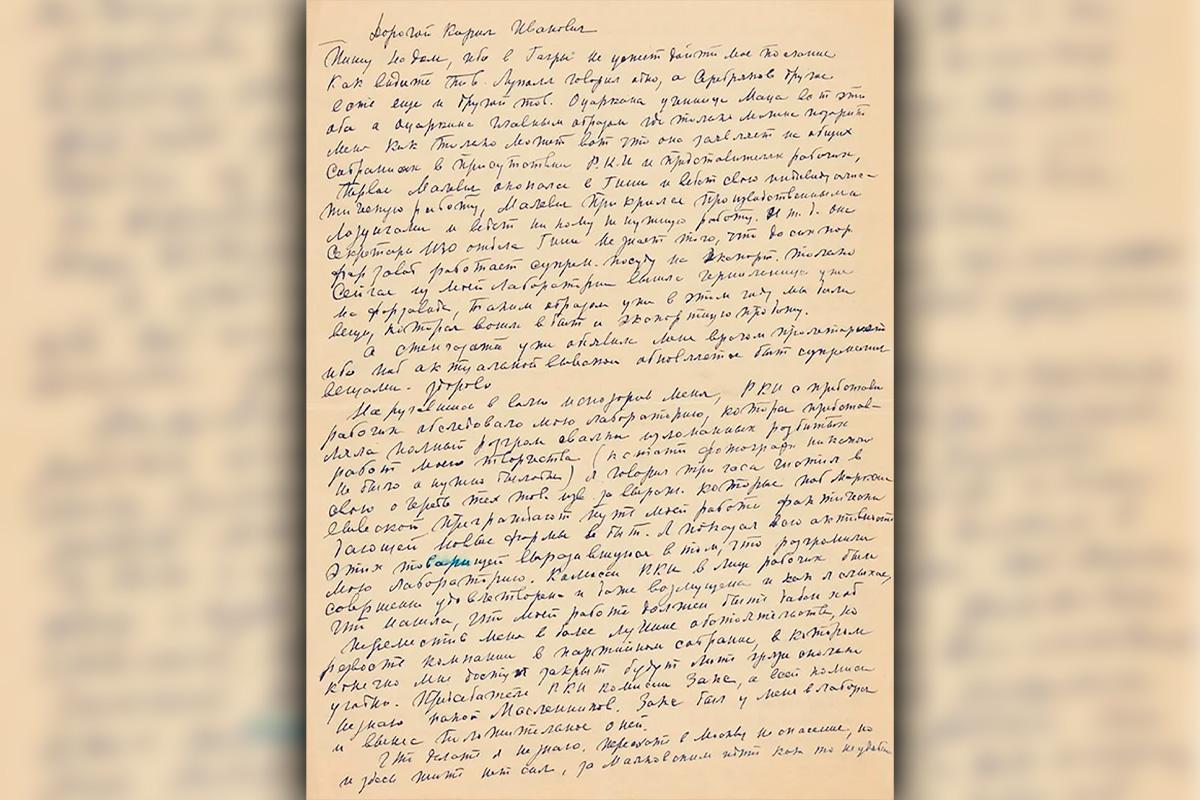 Дорогой Кирил Иванович
Пишу на дом, ибо в Гагры не успеет дойти мое послание
Как видите тов. Лупала говорил одно, а Серебряков другое
есть еще и другой тов. Оцаркина ученице Маца вот эти
оба а Оцаркина главным образом где только можно позорит
меня как только может вот что она заявляет на общих
собраниях в присутствии Р.К.И и представителях рабочих,
Первое Малевич окопался в Гиии и ведет свою индивидуалис-
тическую работу, Малевич прикрылся производственными
лозунгами и ведет никому не нужную работу. И т. д. она
Секретарь ИЗО отдела Гиии не знает того, что до сих пор
фарзавод работает супрем. посуду на экспорт. только
сейчас из моей лаборатории вышла чернильница уже
на фарзавода, таким образом уже в этом году мы дали
вещи, которая вошли в быт и экспортную продажу.
А стенгазета уже обявили меня врагом пролетариата
ибо под актуальной вывеской обновляется быт супремат
вещами. здорово
Наругавшись в волю и опозорив меня, РКИ с представи
рабочих обследовало мою лабораторию, которая представ-
ляла полный розгром свалки изломанных розбитых
работ моего творчества (кстати фотографа никакого
не было а нужно было бы) я говорил три часа чистил в
свою очередь тех тов. из за ширмы. которые под марксис
вывеской преграждают путь моей работе фактически
дающей новые формы в быт. Я показал всю активность
этих товарищей выродившуюся в том, что розгромили
мою лабораторию. Комиссия РКИ в лице рабочих была
совершенно удовлетворена и даже возмущена и как я слыхал,
что нашла, что моей работе должен быть дадан ход
переместив меня в более лучшие обстоятельства, но
резвость компании в партийном собрание, в котором
конечно мне доступ закрыт будут лить грязи сколько
угодно. Председатель РКИ комисии Закс, а всей комиси
не знаю какой Масленников. Закс был у меня в лабора
и вынес положительное о ней.
Что делать я не знаю. переехать в Москву не спасение, но
и здесь жить нет сил, за Маяковским идти как то неудобн